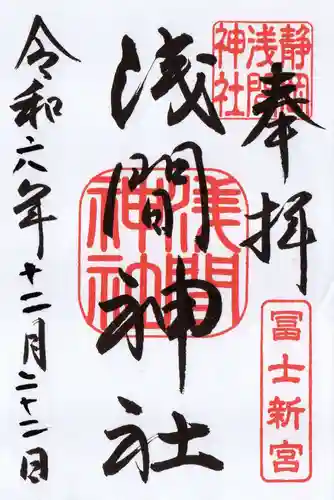 奉拝
静岡浅間神社
冨士新宮
浅間神社
浅間神社
令和六年十二月二十二日